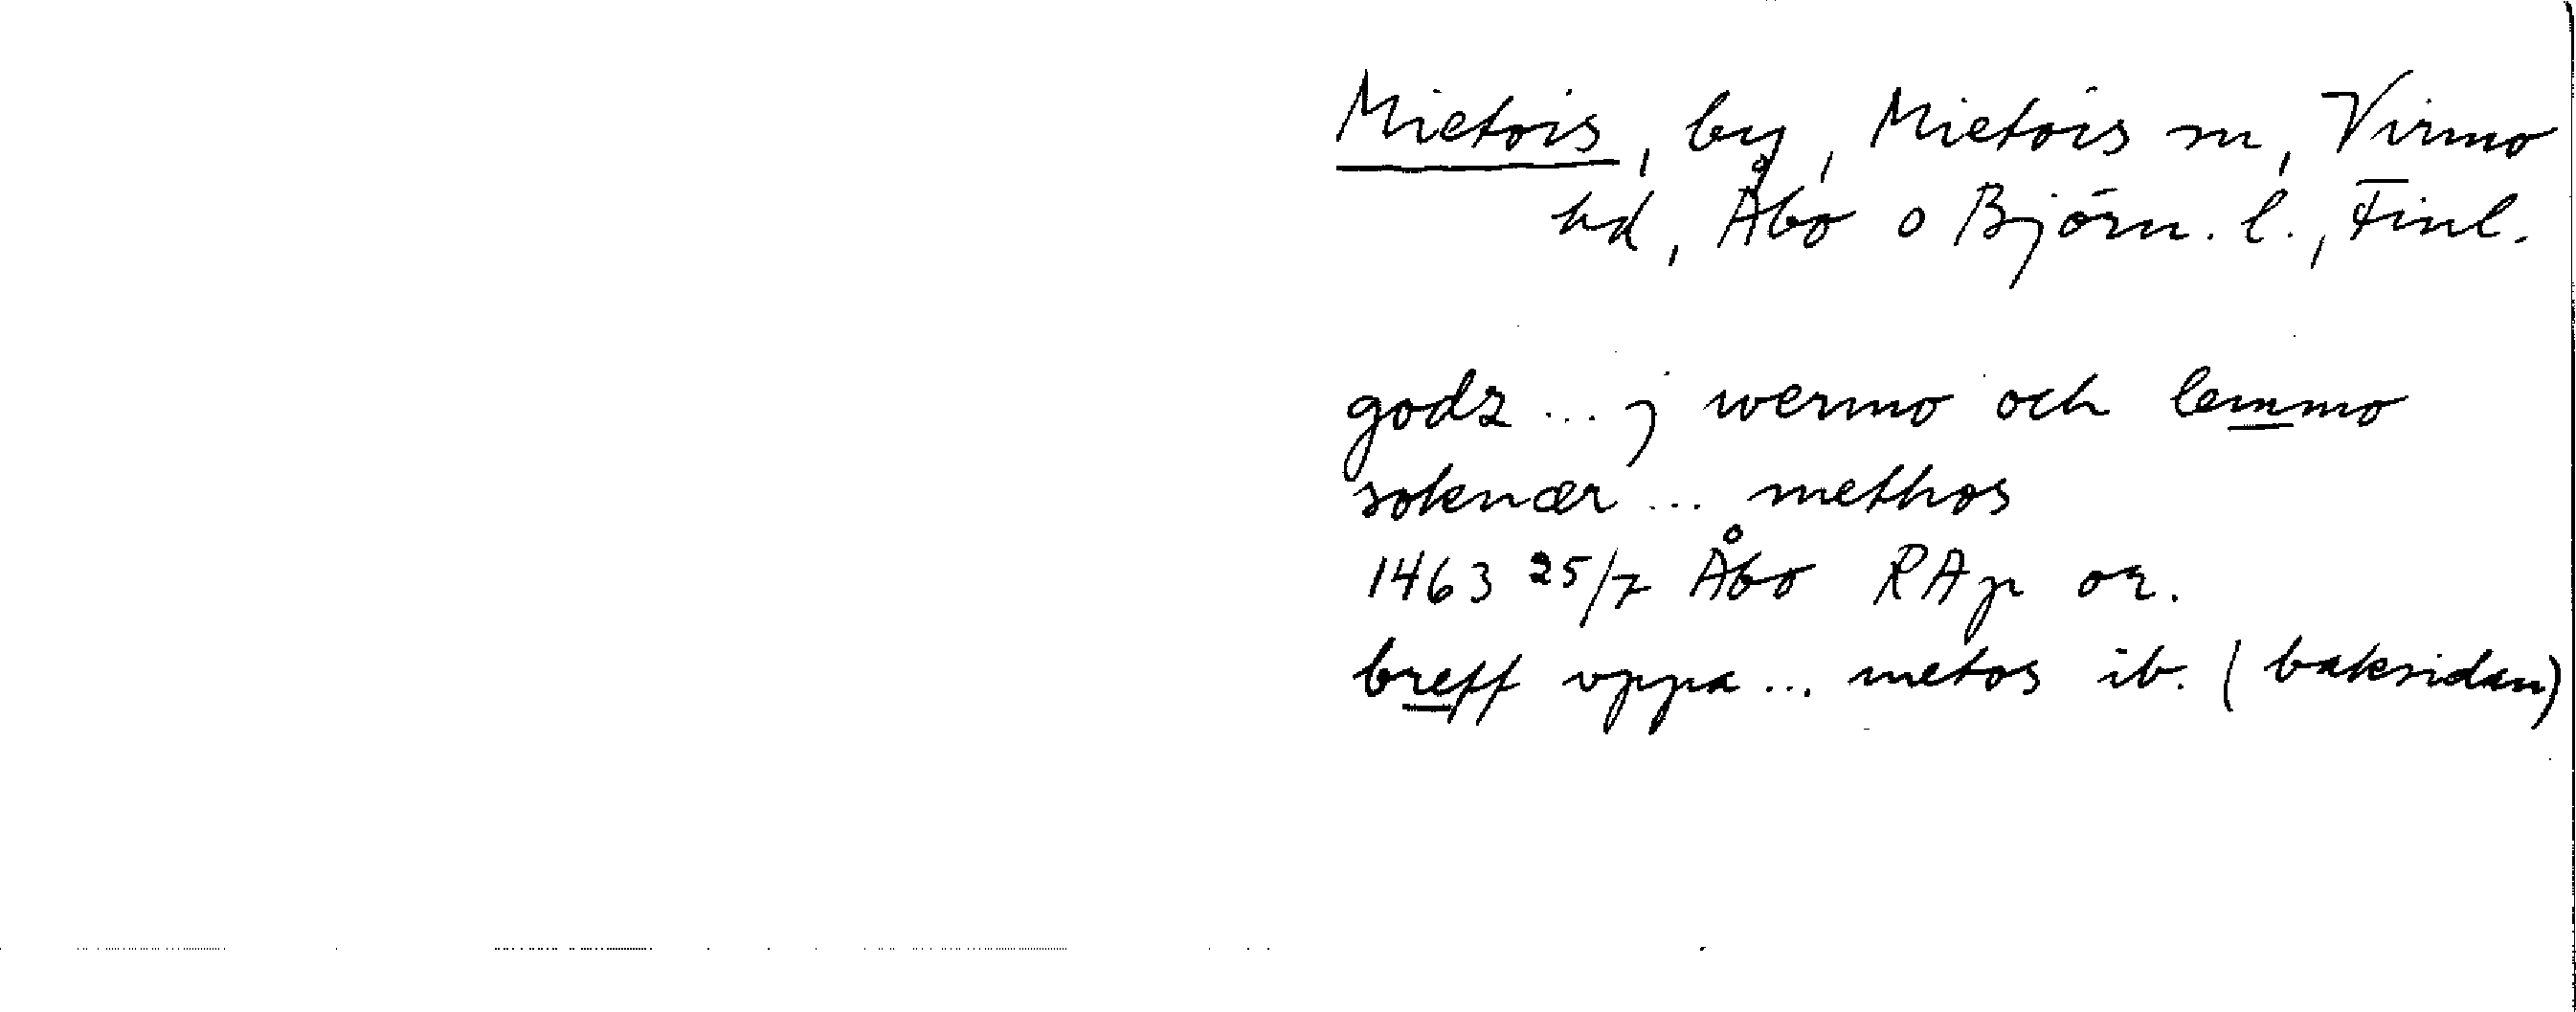 Mietois, by, Mietois sn, Virmo
hd, Åbo o Björn. l., Finl.
godz ... j wermo och lemmo
soknær ... methos
1463 25/7 Åbo RAp or.
breff vppa ... metos ib. (baksidan)